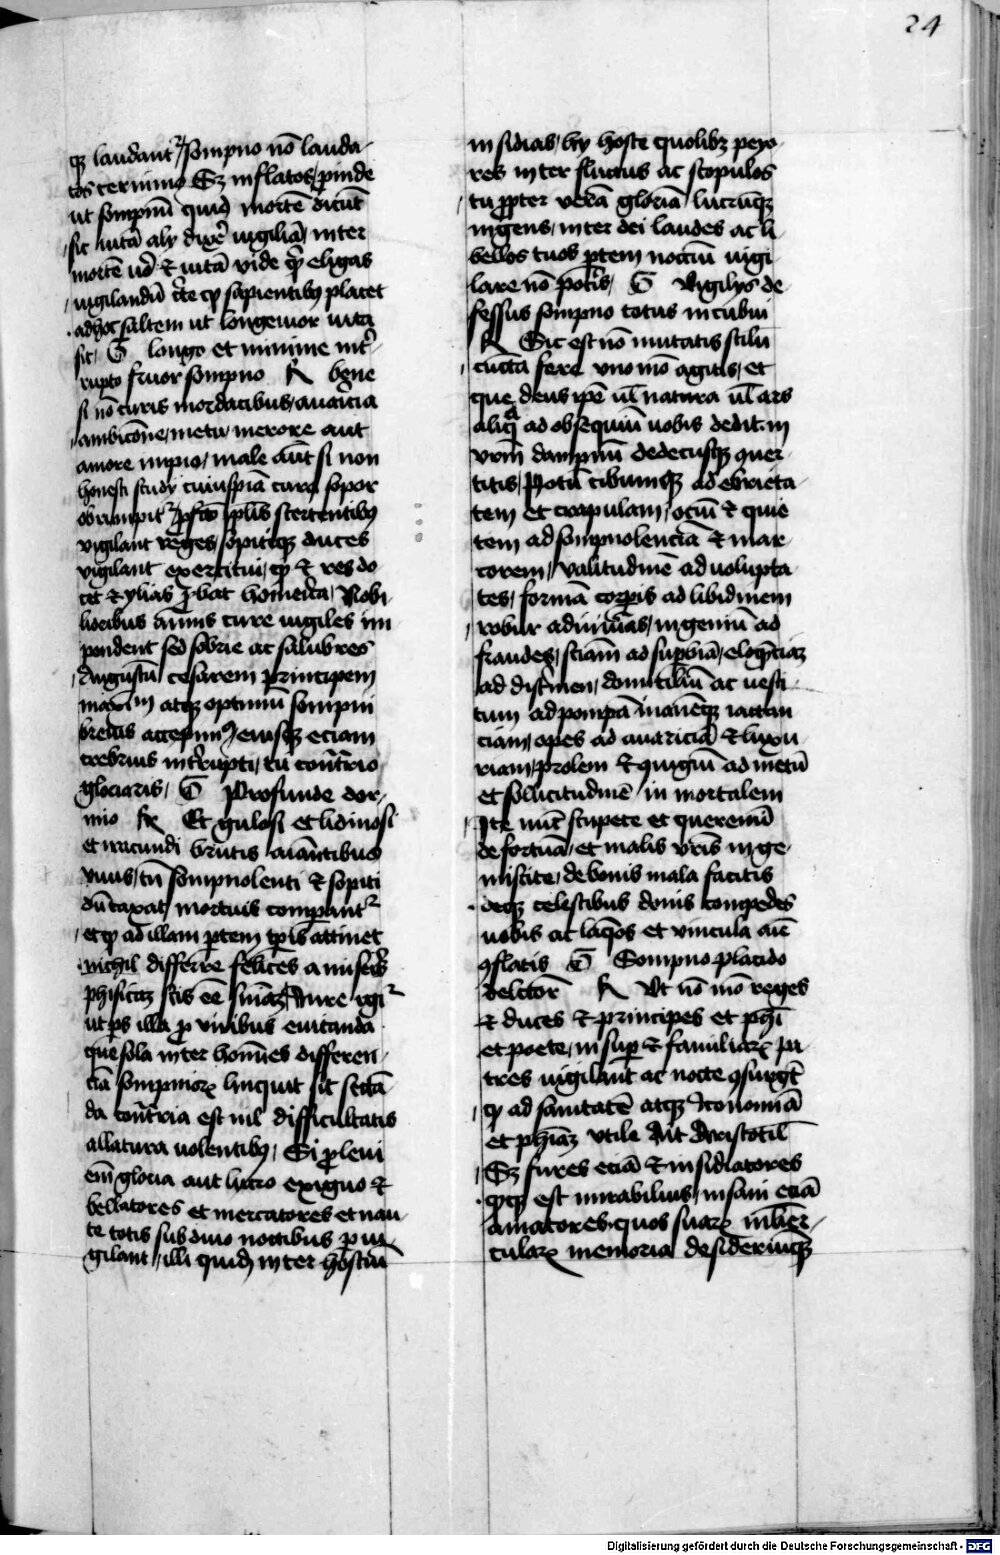 24
q3 laudant᷑ / sompno nō lauda-
tos termino Sꝫ inflatos / ꝓinde
ut sompnū quidā mortē dicūt
sic uitā alij dixēr uigiliā / inter
mortē uō & uitā vide q̄ eligas
uigilandū c̄te qd sapientibꝰ placet
adhoc saltem ut longeuior uita
sit / G longo et minime int̄-
rupto fruor sompno R bene
si nō curis mordacibus / auaricia
ambicōne / metu / merore aut
amore impio / male aūt si non
honesti studij cuiuspiā cura sopor
obrumpit᷑ / ꝓfcō ip̄lis stertentibꝰ
vigilant reges / sopitisq3 duces
vigilant exercitui / qd & res do
cet & ylias ꝓbat homerica / Nobi
lioribus aīmis cure uigiles im
pendent sed sobrie ac salubres
Augustū cesarem principem
maximū atq3 optimū sompni
breuis accepim᷒ / eiusq3 eciam
crebrius int̄rupti / tu cont̄rio
gloriaris / G Profunde dor-
mio R Et gulosi et libidinosi
et iracundi brutis aīantibus
viuis / tn̄ sompnolenti & sopiti
dūtaxat mortuis comparant᷑
et qd ad illam ꝑtem tꝑis attinet
nichil differre felices a miseris
phisicaꝫ scis eē sniāꝫ / Iure igi᷑
ut ꝑs illa ꝓ viribus euitanda
que sola inter homīes differen-
ciā sompnioꝝ linquit sic sectā-
da cont̄ria est nil difficultatis
allatura uolentibꝰ / Si ꝓ leui
em̄ gloria aut lucro exiguo &
bellatores et mercatores et nau-
te totis sub diuo noctibus ꝑui-
gilant / illi quidē inter hostiū
insidias / hij hoste quolibꝫ peyo-
res inter fluctus ac scopulos
tu ꝓpter verā gloriā lucrūq3
ingens / inter dei laudes ac li
bellos tuos ꝑtem noctiū uigi
lare nō pot̄is / G Vigilijs de
fessus sompno totus incubui
R Sic est nō mutatis stilū
cuncta fere vno mō agitis / et
que deus ip̄e ul̄ natura ul̄ ars
aliq̄ ad obsequiū uobis dedit in
vr̄m dampnū dedecusq3 quer-
titis / Potū cibumq3 ad ebrieta-
tem et crapulam / ociū & quie
tem ad sompnolenciā & mar-
corem / valitudinē ad uolupta
tes / formā corꝑis ad libidinem
robur ad iniurias / ingeniū ad
fraudes / sciam ad suꝑbiā / eloq̄ciaꝫ
ad discrimen / domiciliū ac uesti-
tum ad pompā inanēq3 iactan
ciam / opes ad auariciā & luxu
riam / prolem & ꝯiugiū ad metū
et sollicitudinē in mortalem
Ite nūc stupete et querimū
de fortuna / et malis vr̄is inge-
miscite / de bonis mala facitis
deq3 celestibus donis compedes
uobis ac laq̄os et vincula aīe
ꝯflatis G Sompno placido
delector R Vt nō mō reges
& duces & principes et ph̄i
et poete / insuꝑ & familiaꝝ pa
tres uigilant ac nocte ꝯsurgūt
qd ad sanitatē atq3 yconomiā
et ph̄iaꝫ vtile Ait Aristotil̄
Sꝫ fures eciā & insidiatores
qd q3 est mirabilius / insani eciā
amatores quos suaꝝ mulier-
culaꝝ memoria desideriūq3